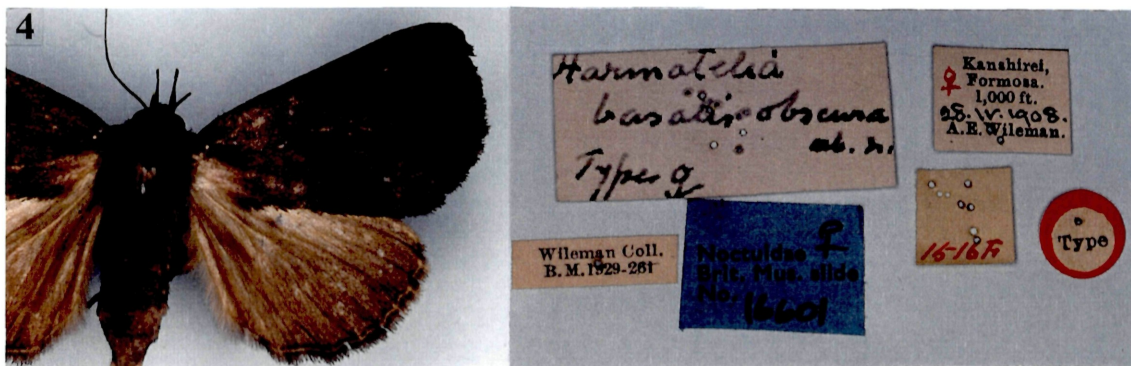 4
Harmatelia
basalis obscura
ab. n.
Type ♀
♀ Kanshirei,
Formosa.
1,000 ft.
28.IV.1908.
A.E. Wileman.
Wileman Coll.
B.M.1929-261
Noctuidae ♀
Brit. Mus. slide
No. 16601
Type